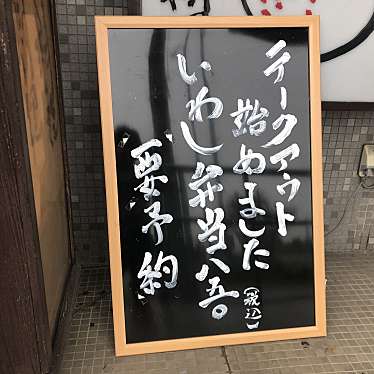 テークアウト
始めました
いわし弁当八五〇
(税込)
要予約